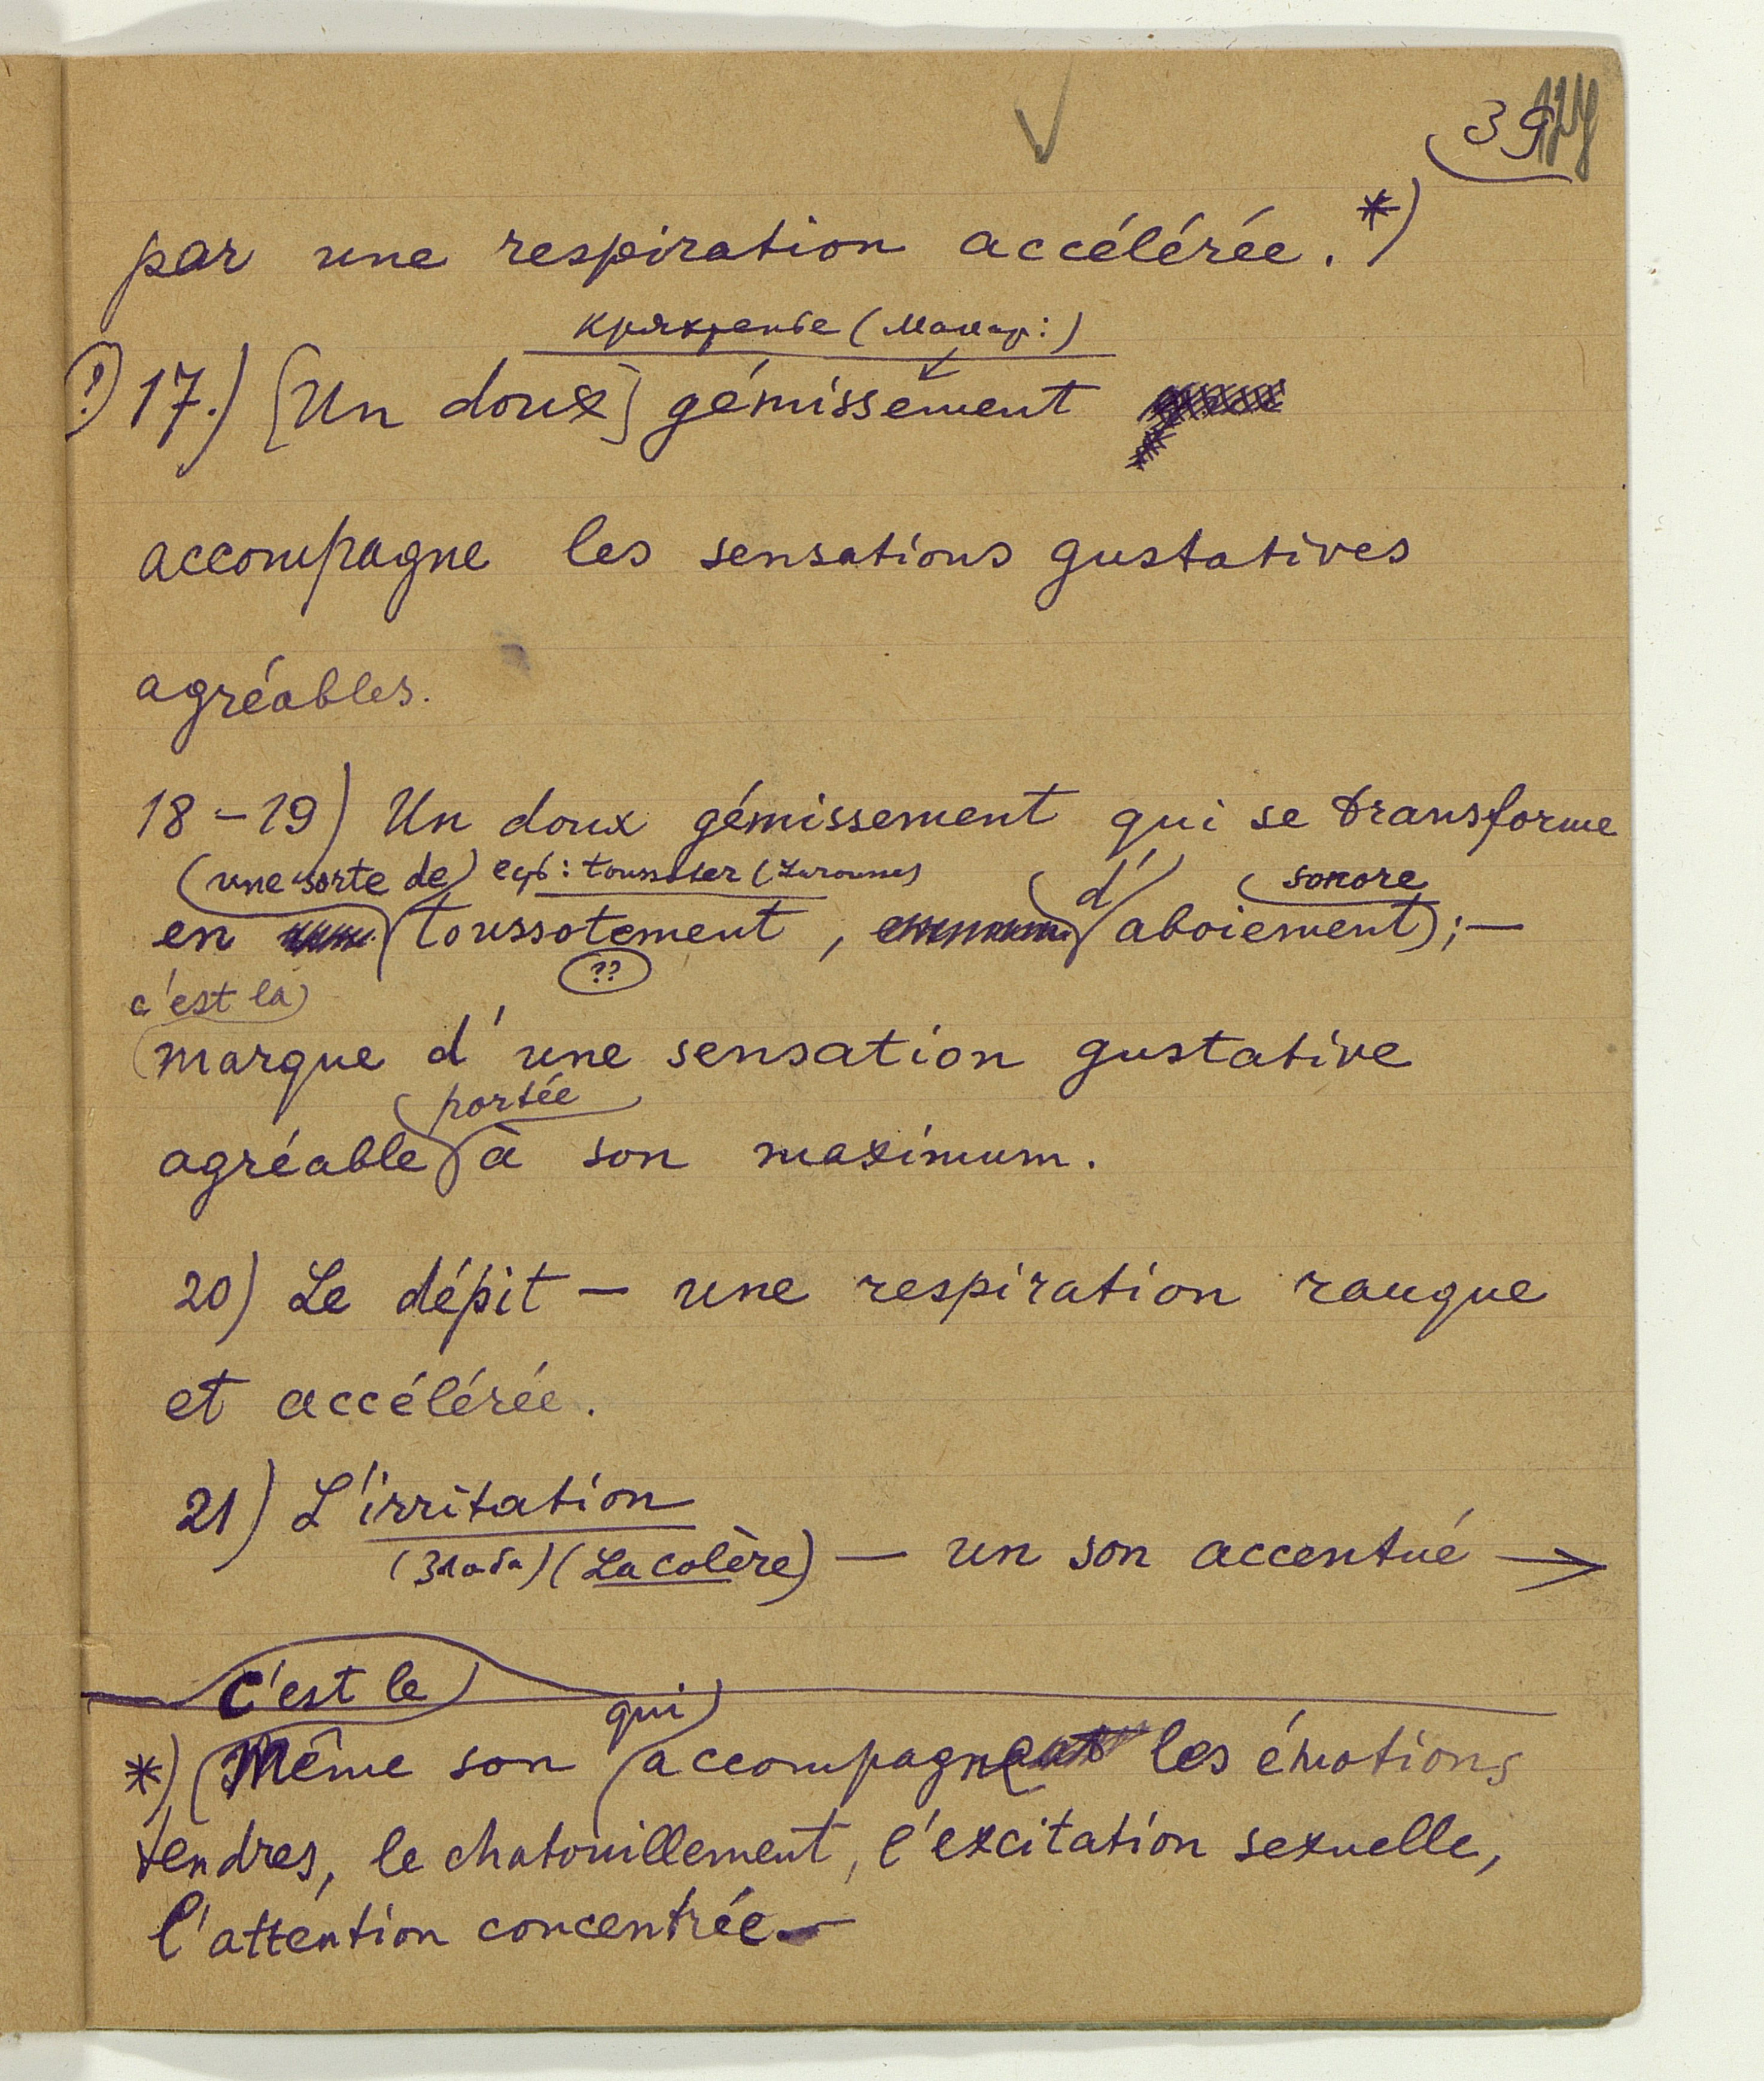 39
par une respiration accélérée. *)
кряхтенье (Макар:)
?) 17.) [Un doux] gémissement
accompagne les sensations gustatives
agréables.
18–19) Un doux gémissement qui se transforme
(une sorte de) есть: toussoter (                ) d' sonore
en toussotement, aboiement); —
??
c'est la
marque d'une sensation gustative
portée
agréable à son maximum.
20) Le dépit — une respiration rauque
et accélérée.
21) L'irritation
(Злоба) (La colère) — un son accentué →
c'est le qui
*) Même son accompagne les émotions
tendres, le chatouillement, l'excitation sexuelle,
l'attention concentrée —